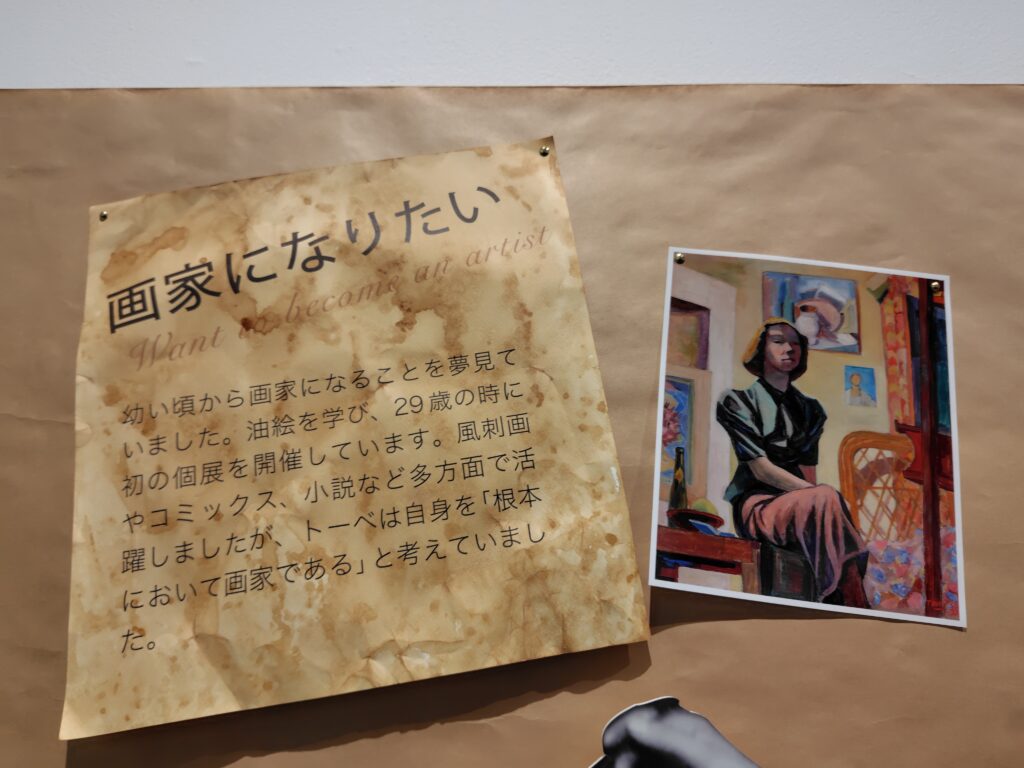 画家になりたい
Want to become an artist
幼い頃から画家になることを夢見て
いました。油絵を学び、29歳の時に
初の個展を開催しています。風刺画
やコミックス、小説など多方面で活
躍しましたが、トーベは自身を「根本
において画家である」と考えていまし
た。